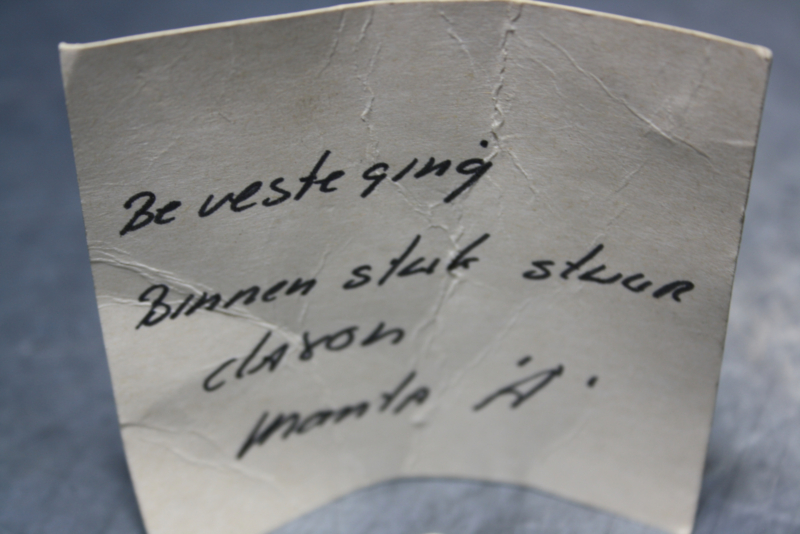 Be vesteging
Binnen stuk stuur
claxon
manta "A".